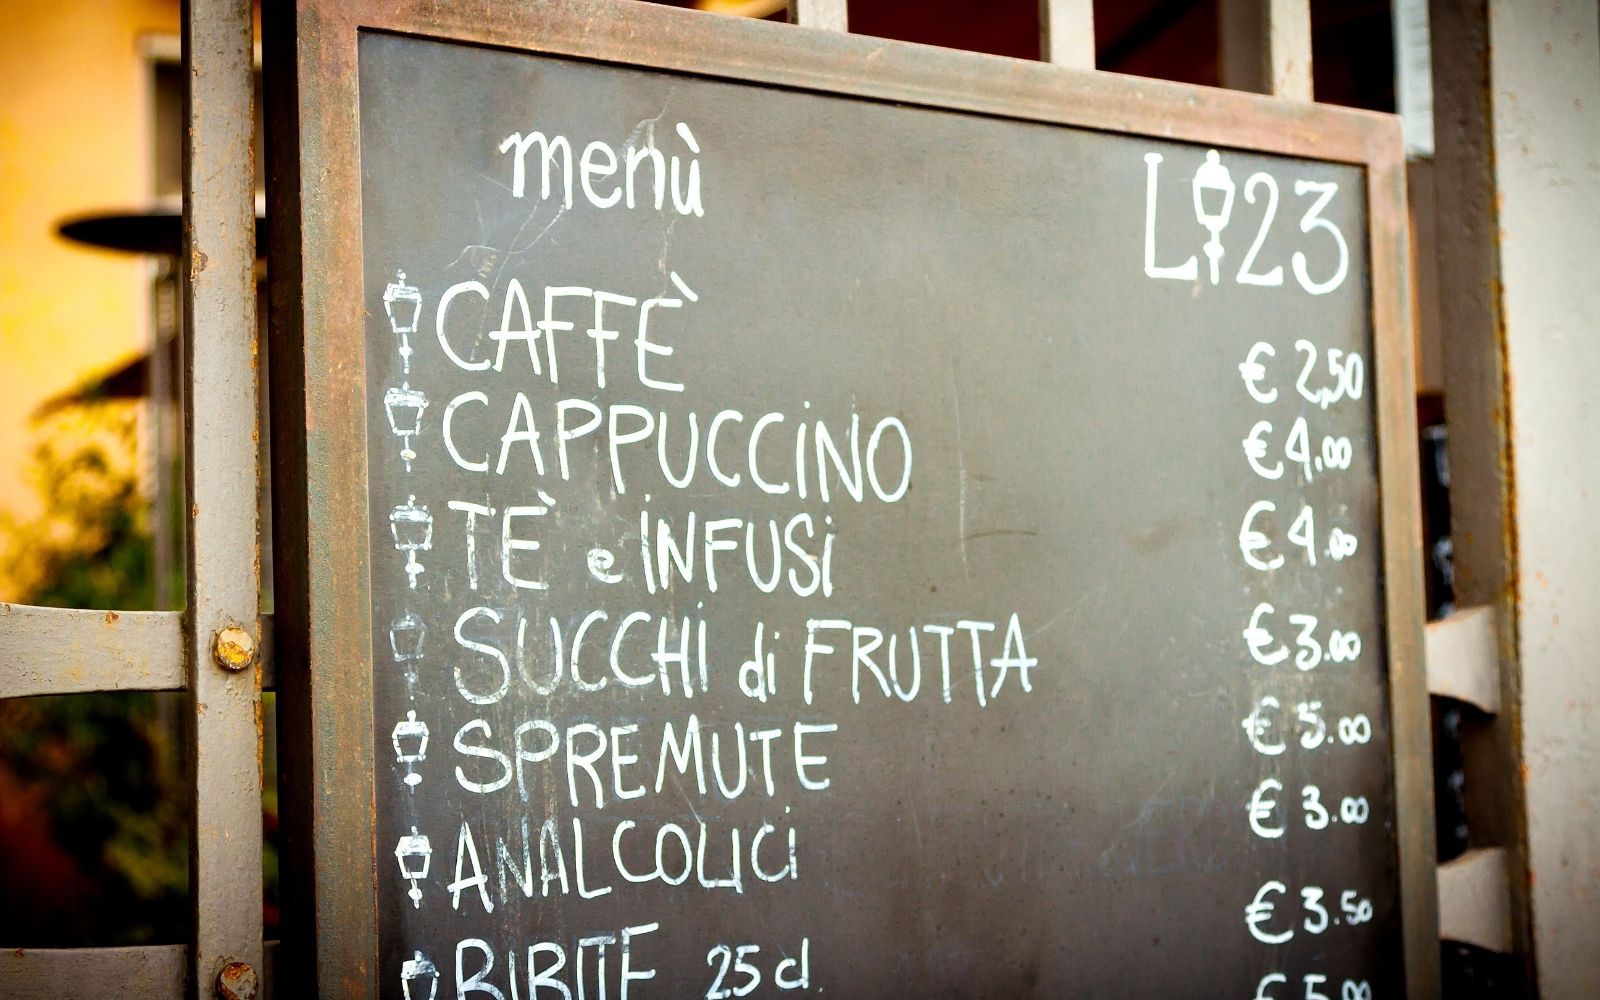 menù L 23
CAFFÈ € 2,50
CAPPUCCiNO € 4.00
TÈ e iNFUSi € 4.00
SUCCHi di FRUTTA € 3.00
SPREMUTE € 5.00
ANALCOLICi € 3.00
BIBITE 25 cl € 3.50
€ 5.00